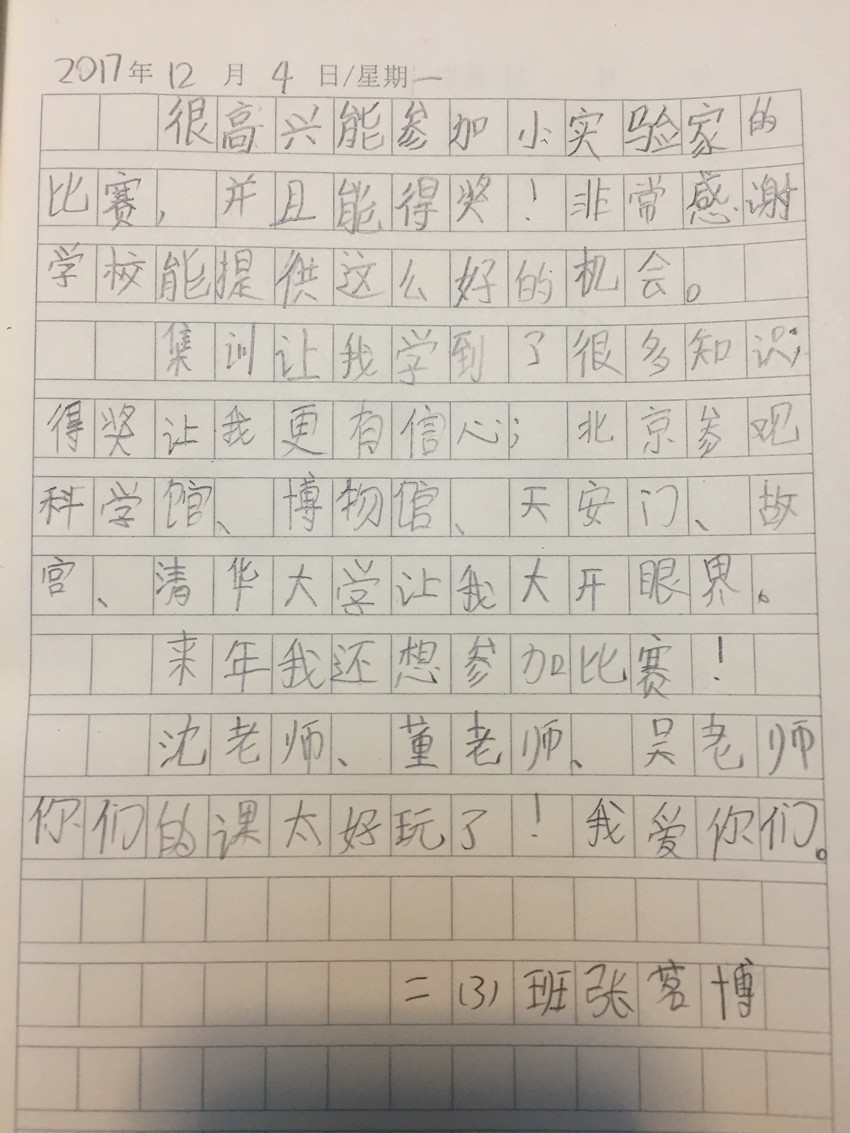 2017年12月4日/星期一
很高兴能参加小实验家的
比赛，并且能得奖！非常感谢
学校能提供这么好的机会。
集训让我学到了很多知识，
得奖让我更有信心；北京参观
科学馆、博物馆、天安门、故
宫、清华大学让我大开眼界。
来年我还想参加比赛！
沈老师、董老师、吴老师
你们的课太好玩了！我爱你们。
二（3）班张茗博